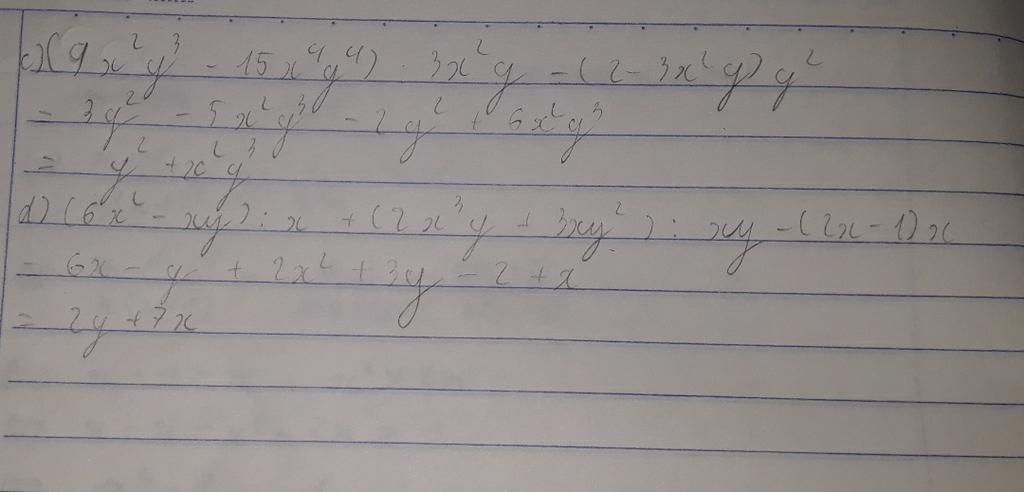 c) (9x²y³ - 15x⁴y⁴) : 3x²y - (2 - 3x²y) y²
= 3y² - 5x²y³ - 2y² + 6x²y³
= y² + x²y³
d) (6x² - xy) : x + (2x³y + 3xy²) : xy - (2x - 1)x
= 6x - y + 2x² + 3y - 2 + x
= 2y + 7x